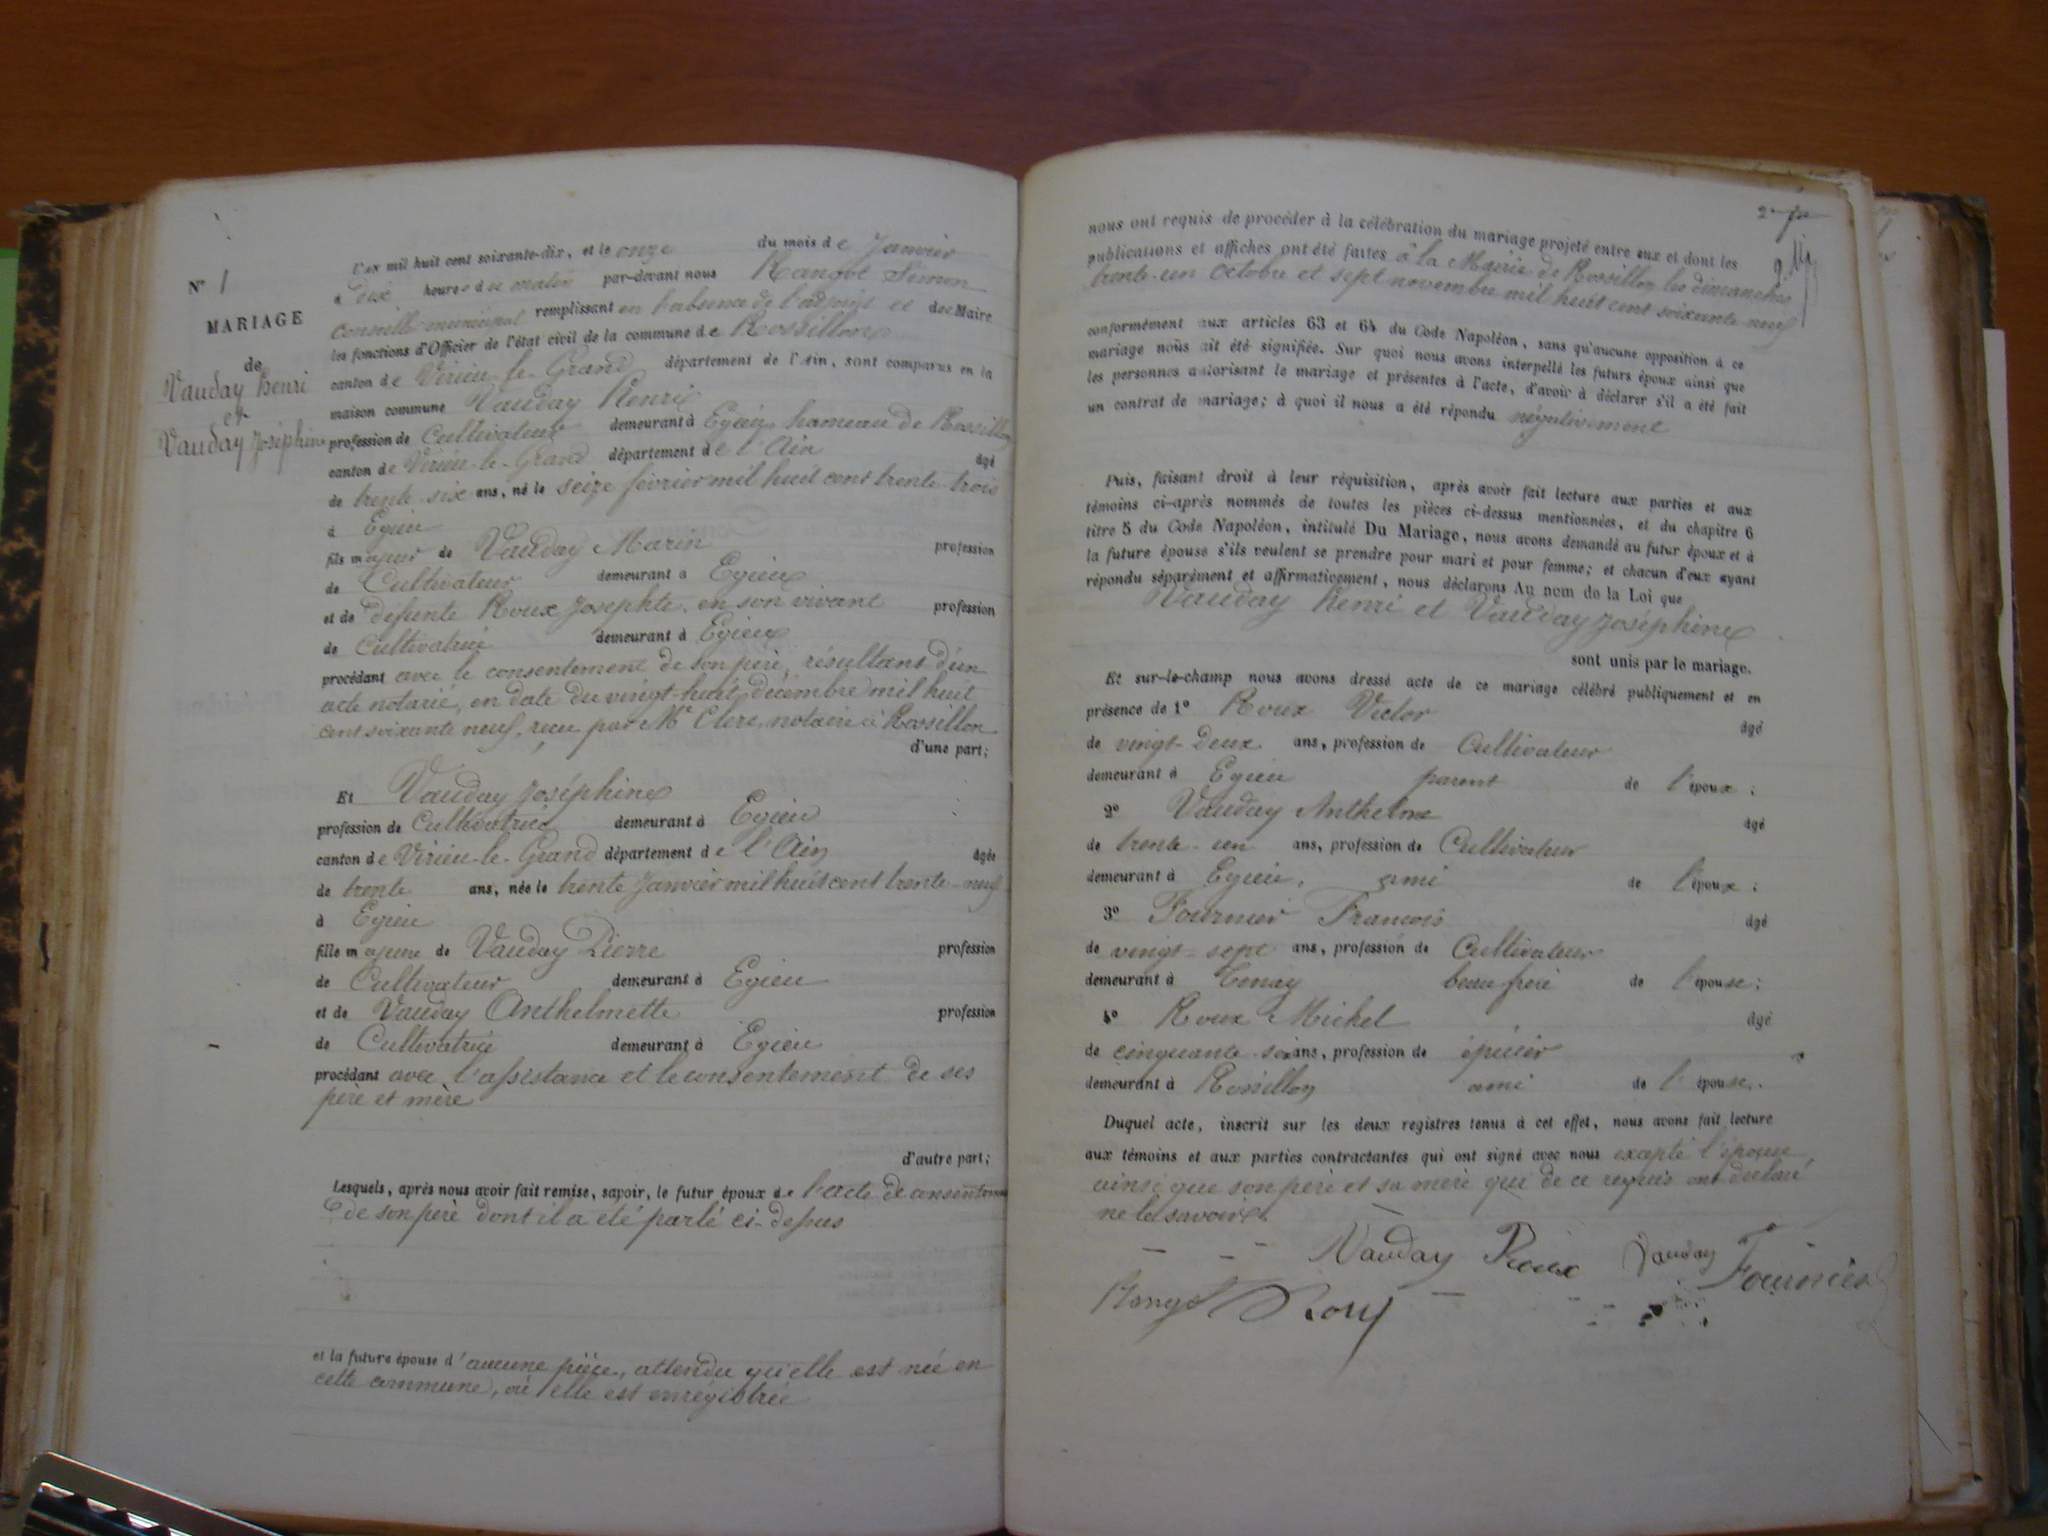 N° 1
MARIAGE
de
Vauday henri
et
Vauday Joséphine
L'an mil huit cent soixante-dix, et le onze du mois de Janvier
à dix heures du matin par-devant nous Rangot Simon
conseiller municipal remplissant en l'absence de l'adjoint et des Maire
les fonctions d'Officier de l'état civil de la commune de Rossillon
canton de Virieu-le-Grand département de l'Ain, sont comparus en la
maison commune Vauday Henri
profession de Cultivateur demeurant à Egieu hameau de Rossillon
canton de Virieu-le-Grand département de l'Ain âgé
de trente-six ans, né le seize février mil huit cent trente-trois
à Egieu
fils majeur de Vauday Marin profession
de Cultivateur demeurant à Egieu
et de défunte Roux Josephte, en son vivant profession
de Cultivatrice demeurant à Egieu
procédant avec le consentement de son père, résultant d'un
acte notarié, en date du vingt-huit décembre mil huit
cent soixante neuf, reçu par Me Clerc, notaire à Rossillon
d'une part;
Et Vauday Joséphine
profession de Cultivatrice demeurant à Egieu
canton de Virieu-le-Grand département de l'Ain âgée
de trente ans, née le trente Janvier mil huit cent trente-neuf
à Egieu
fille majeure de Vauday Pierre profession
de Cultivateur demeurant à Egieu
et de Vauday Anthelmette profession
de Cultivatrice demeurant à Egieu
procédant avec l'assistance et le consentement de ses
père et mère
d'autre part;
Lesquels, après nous avoir fait remise, savoir, le futur époux de l'acte de consentement
de son père dont il a été parlé ci-dessus
et la future épouse d'aucune pièce, attendu qu'elle est née en
cette commune, où elle est enrégistrée
2e
nous ont requis de procéder à la célébration du mariage projeté entre eux et dont les
publications et affiches ont été faites à la Mairie de Rossillon les dimanches
trente-un octobre et sept novembre mil huit cent soixante-neuf
conformément aux articles 63 et 64 du Code Napoléon, sans qu'aucune opposition à ce
mariage nous ait été signifiée. Sur quoi nous avons interpellé les futurs époux ainsi que
les personnes autorisant le mariage et présentes à l'acte, d'avoir à déclarer s'il a été fait
un contrat de mariage; à quoi il nous a été répondu négativement
Puis, faisant droit à leur réquisition, après avoir fait lecture aux parties et aux
témoins ci-après nommés de toutes les pièces ci-dessus mentionnées, et du chapitre 6
titre 5 du Code Napoléon, intitulé Du Mariage, nous avons demandé au futur époux et à
la future épouse s'ils veulent se prendre pour mari et pour femme; et chacun d'eux ayant
répondu séparément et affirmativement, nous déclarons Au nom de la Loi que
Vauday henri et Vauday Joséphine
sont unis par le mariage.
Et sur-le-champ nous avons dressé acte de ce mariage célébré publiquement et en
présence de 1° Roux Victor âgé
de vingt-deux ans, profession de Cultivateur
demeurant à Egieu parent de l'époux;
2° Vauday Anthelme âgé
de trente-un ans, profession de Cultivateur
demeurant à Egieu, ami de l'époux;
3° Fournier François âgé
de vingt-sept ans, profession de Cultivateur
demeurant à Tenay beau frère de l'épouse;
4° Roux Michel âgé
de cinquante-six ans, profession de épicier
demeurant à Rossillon ami de l'épouse.
Duquel acte, inscrit sur les deux registres tenus à cet effet, nous avons fait lecture
aux témoins et aux parties contractantes qui ont signé avec nous excepté l'épouse,
ainsi que son père et sa mère qui de ce requis ont déclaré
ne le savoir.
Vauday Roux Vauday Fournier
Rangot Roux